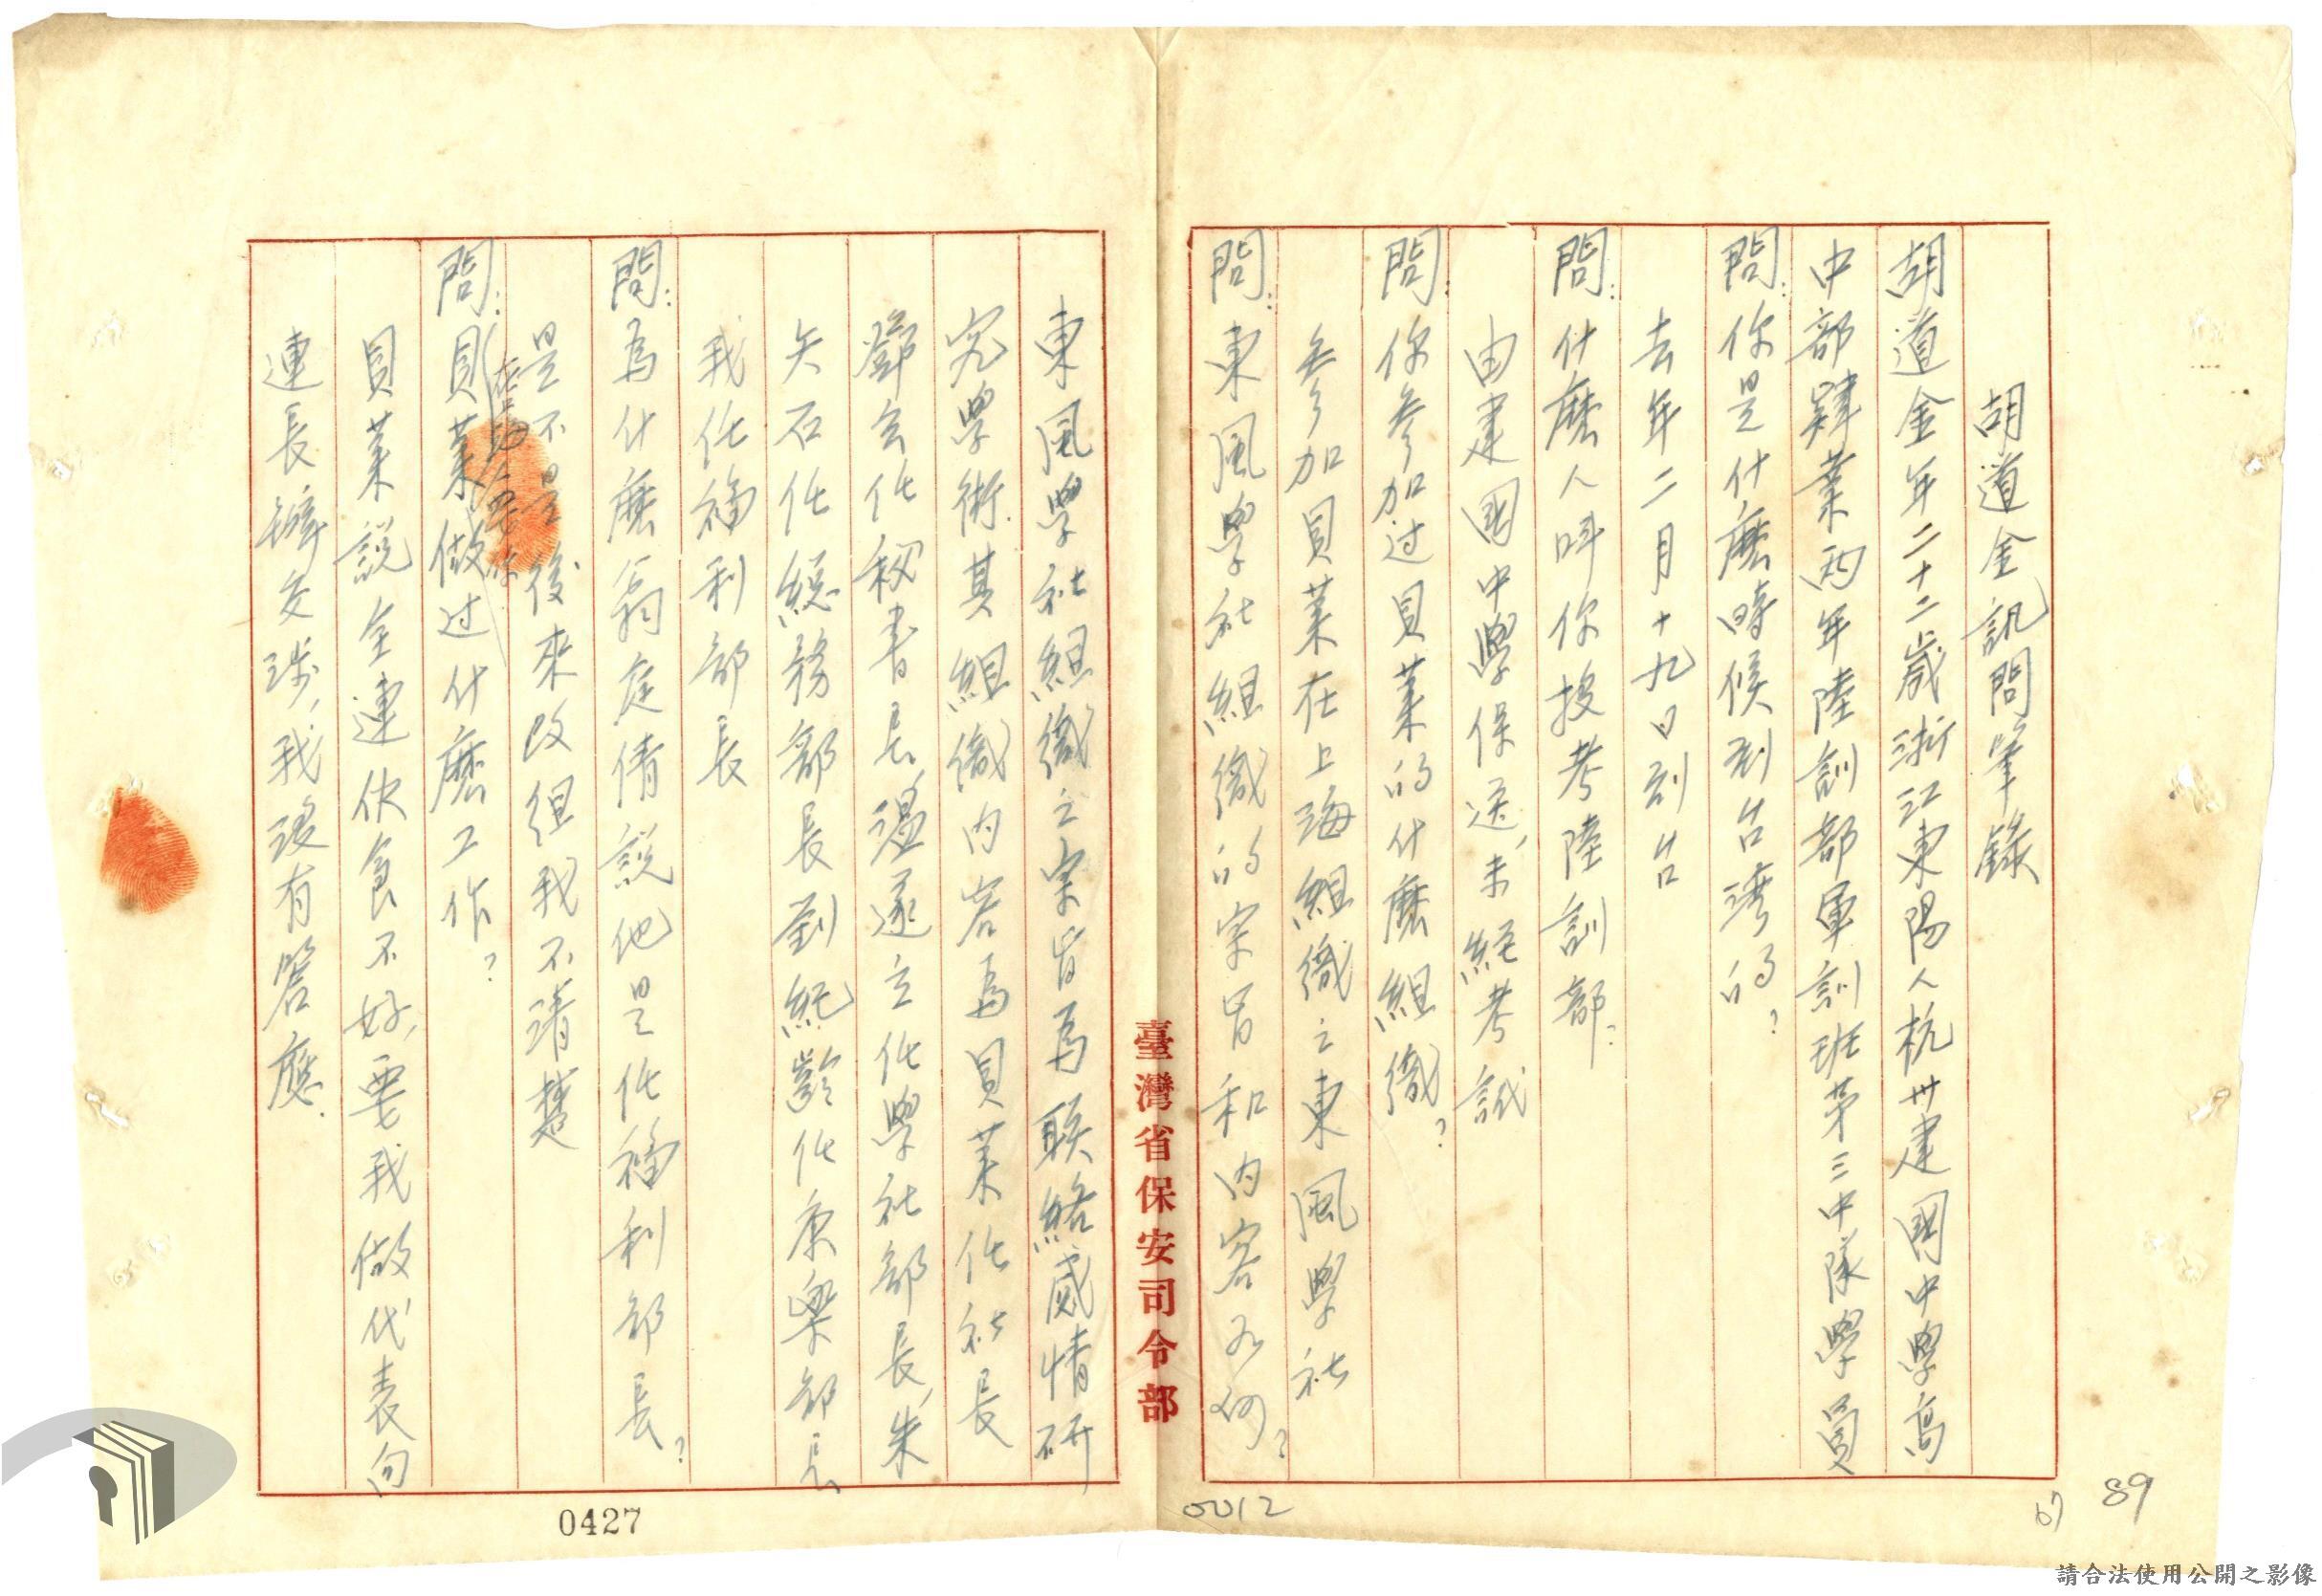 胡道金訊問筆錄
胡道金年二十二歲浙江東陽人杭州建國中學高
中部肄業兩年陸訓部軍訓班第三中隊學員
問:你是什麼時候到台灣的?
去年二月十九日到台
問:什麼人叫你投考陸訓部?
由建國中學保送,未經考試
問:你參加过貝萊的什麼組織?
參加貝萊在上海組織之東風學社
問:東風學社組織的宗旨和內容如何?
東風學社組織之宗旨為联絡感情研
究學術.其組織內容為貝萊任社長
鄧會任秘書長,遂立任學社部長,朱
矢石任總務部長劉純齡任康樂部長
我任福利部長
問:為什麼翁庭倩說他是任福利部長?
是不是後來改組我不清楚
問:貝萊(在上海)做过什麼工作?
貝萊說全連伙食不好,要我做代表向
連長辦交涉,我沒有答應.
臺灣省保安司令部
0427
0012
67
89
請合法使用公開之影像